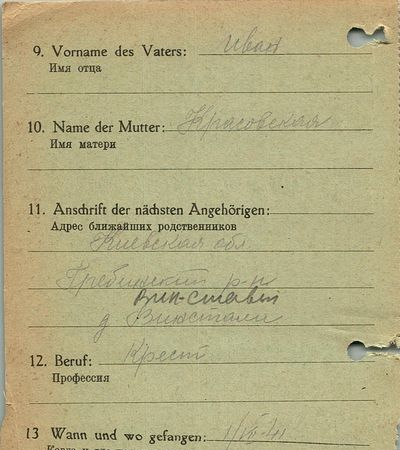 9. Vorname des Vaters: Иван
Имя отца
10. Name der Mutter: Красовская
Имя матери
11. Anschrift der nächsten Angehörigen:
Адрес ближайших родственников
Киевская обл.
Гребинский р-н
Вин-Стави
д Винстали
12. Beruf: Крест
Профессия
13 Wann und wo gefangen: